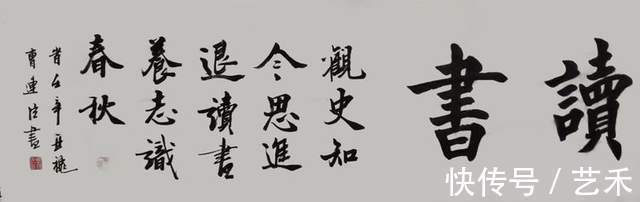 讀書
觀史知
今思進
退讀書
養志識
春秋
辛
曹連書
快传号 / 艺禾